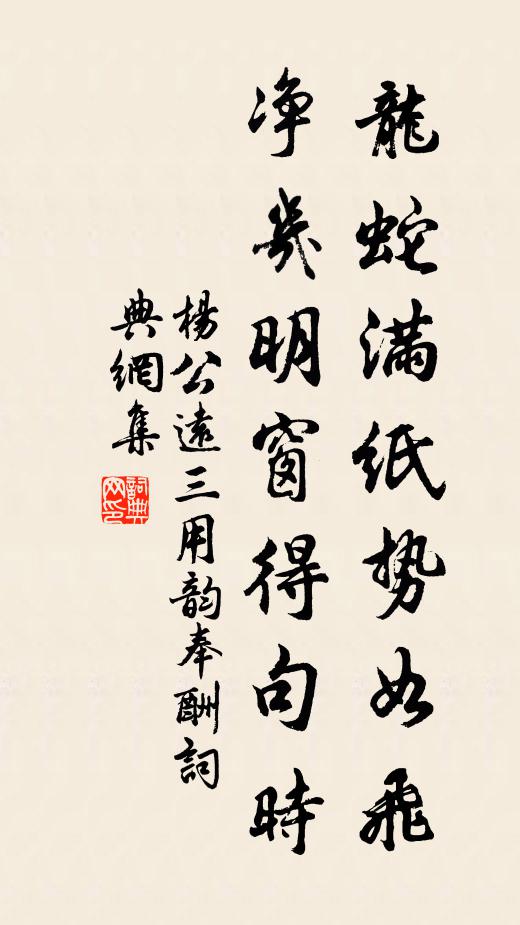 龍蛇滿紙勢如飛
净幾明窗得句時
楊公遠三用韵奉酬詞
典網集
詞典
网印